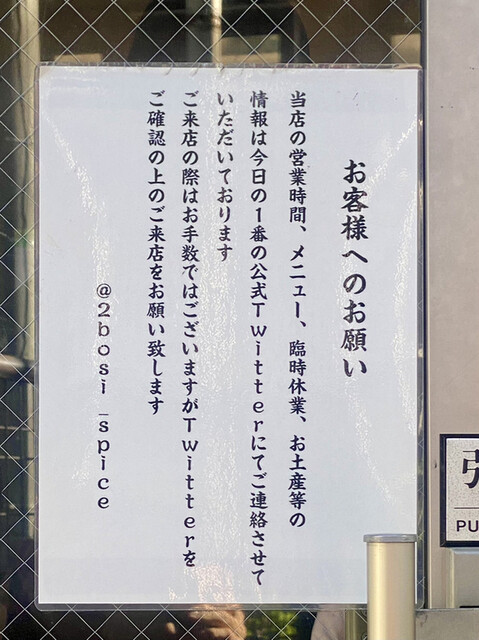 お客様へのお願い
当店の営業時間、メニュー、臨時休業、お土産等の
情報は今日の1番の公式Twitterにてご連絡させて
いただいております
ご来店の際はお手数ではございますがTwitterを
ご確認の上のご来店をお願い致します
@2bosi_spice
PU